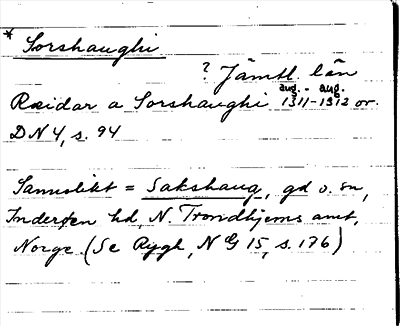 * Sorshaughi
? Jämtl. län
aug. - aug.
Reidar a Sorshaughi 1311-1312 or.
DN 4, s. 94
Sannolikt = Sakshaug, gd o. sn,
Inderøen hd, N. Trondhjems amt,
Norge. (Se Rygh, NG 15, s. 176)